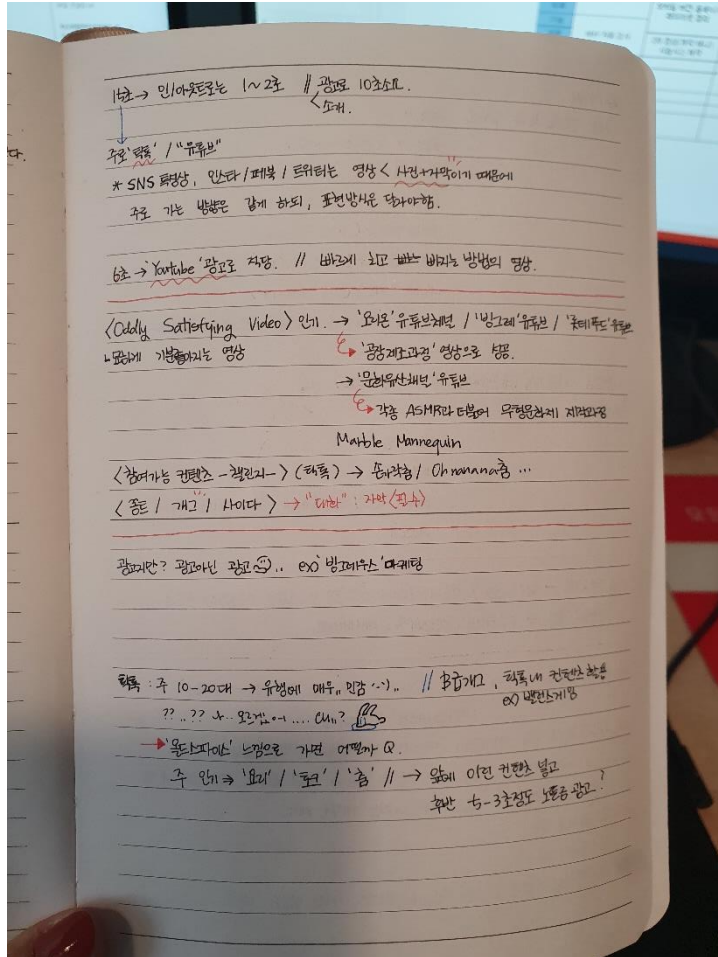 15초 → 인/아웃트로는 1~2초 // 광고로 10초소요.
< 소개.
주로 '틱톡' / "유튜브"
* SNS 특성상, 인스타/페북/트위터는 영상 < 사진+자막이기 때문에
주로 가는 방향은 같게 하되, 표현방식은 달라야함.
6초 → 'Youtube' 광고로 적당. // 빠르게 치고 빠지는 방법의 영상.
<Oddly Satisfying Video> 인기. → '요리온' 유튜브채널 / '빙그레' 유튜브 / '롯데푸드' 유튜브
묘하게 기분좋아지는 영상
'공장제조과정' 영상으로 성공.
→ '문화유산채널' 유튜브
각종 ASMR과 더불어 무형문화재 제작과정
Marble Mannequin
<참여가능 컨텐츠 -챌린지-> (틱톡) → 손가락춤 / Oh nanana춤 ...
<콩트 / 개그 / 사이다> → "대화" : 자막<필수>
광고지만? 광고아닌 광고.. ex) '빙그레우스' 마케팅
틱톡 : 주 10-20대 → 유행에 매우,, 민감 ,, // B급개그, 틱톡내 컨텐츠 활용
ex) 밸런스게임
?? .. ?? .. 모르겠어 ....
→ '올드스파이스' 느낌으로 가면 어떨까 Q.
주 인기 → '요리' / '토크' / '춤' // → 앞에 이런 컨텐츠 넣고
후반 5-3초정도 노출증광고?